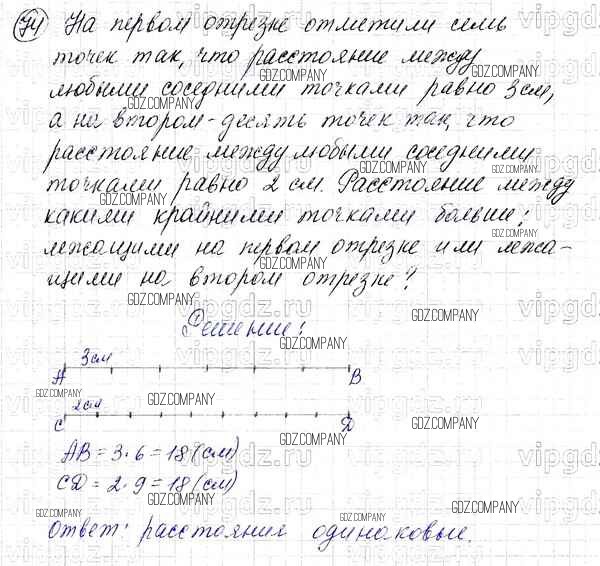 74 На первом отрезке отметили семь
точек так, что расстояние между
любыми соседними точками равно 3см,
а на втором - десять точек так, что
расстояние между любыми соседними
точками равно 2 см. Расстояние между
какими крайними точками больше:
лежащими на первом отрезке или лежа-
щими на втором отрезке?
Решение:
3см
A B
2см
C D
AB = 3·6 = 18 (см)
CD = 2·9 = 18 (см)
Ответ: расстояния одинаковые.
GDZ.COMPANY
vipgdz.ru